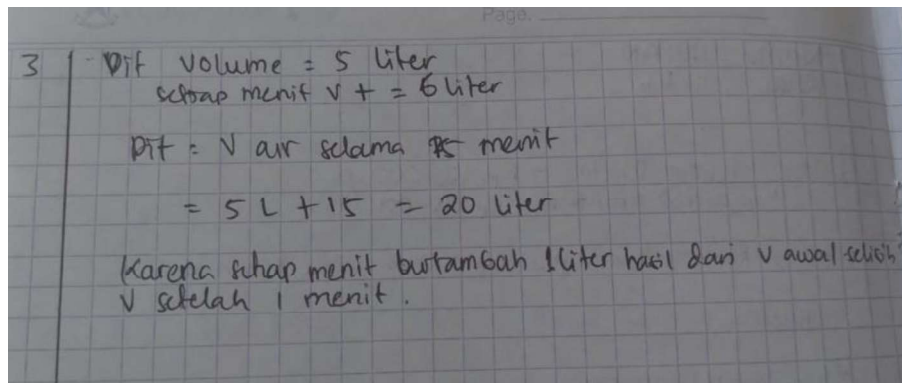 Page.
3 Dit Volume = 5 liter
setiap menit V + = 6 liter
Dit = V air selama 15 menit
= 5 L + 15 = 20 liter
Karena setiap menit bertambah 1 liter hasil dari V awal selisih
V setelah 1 menit.